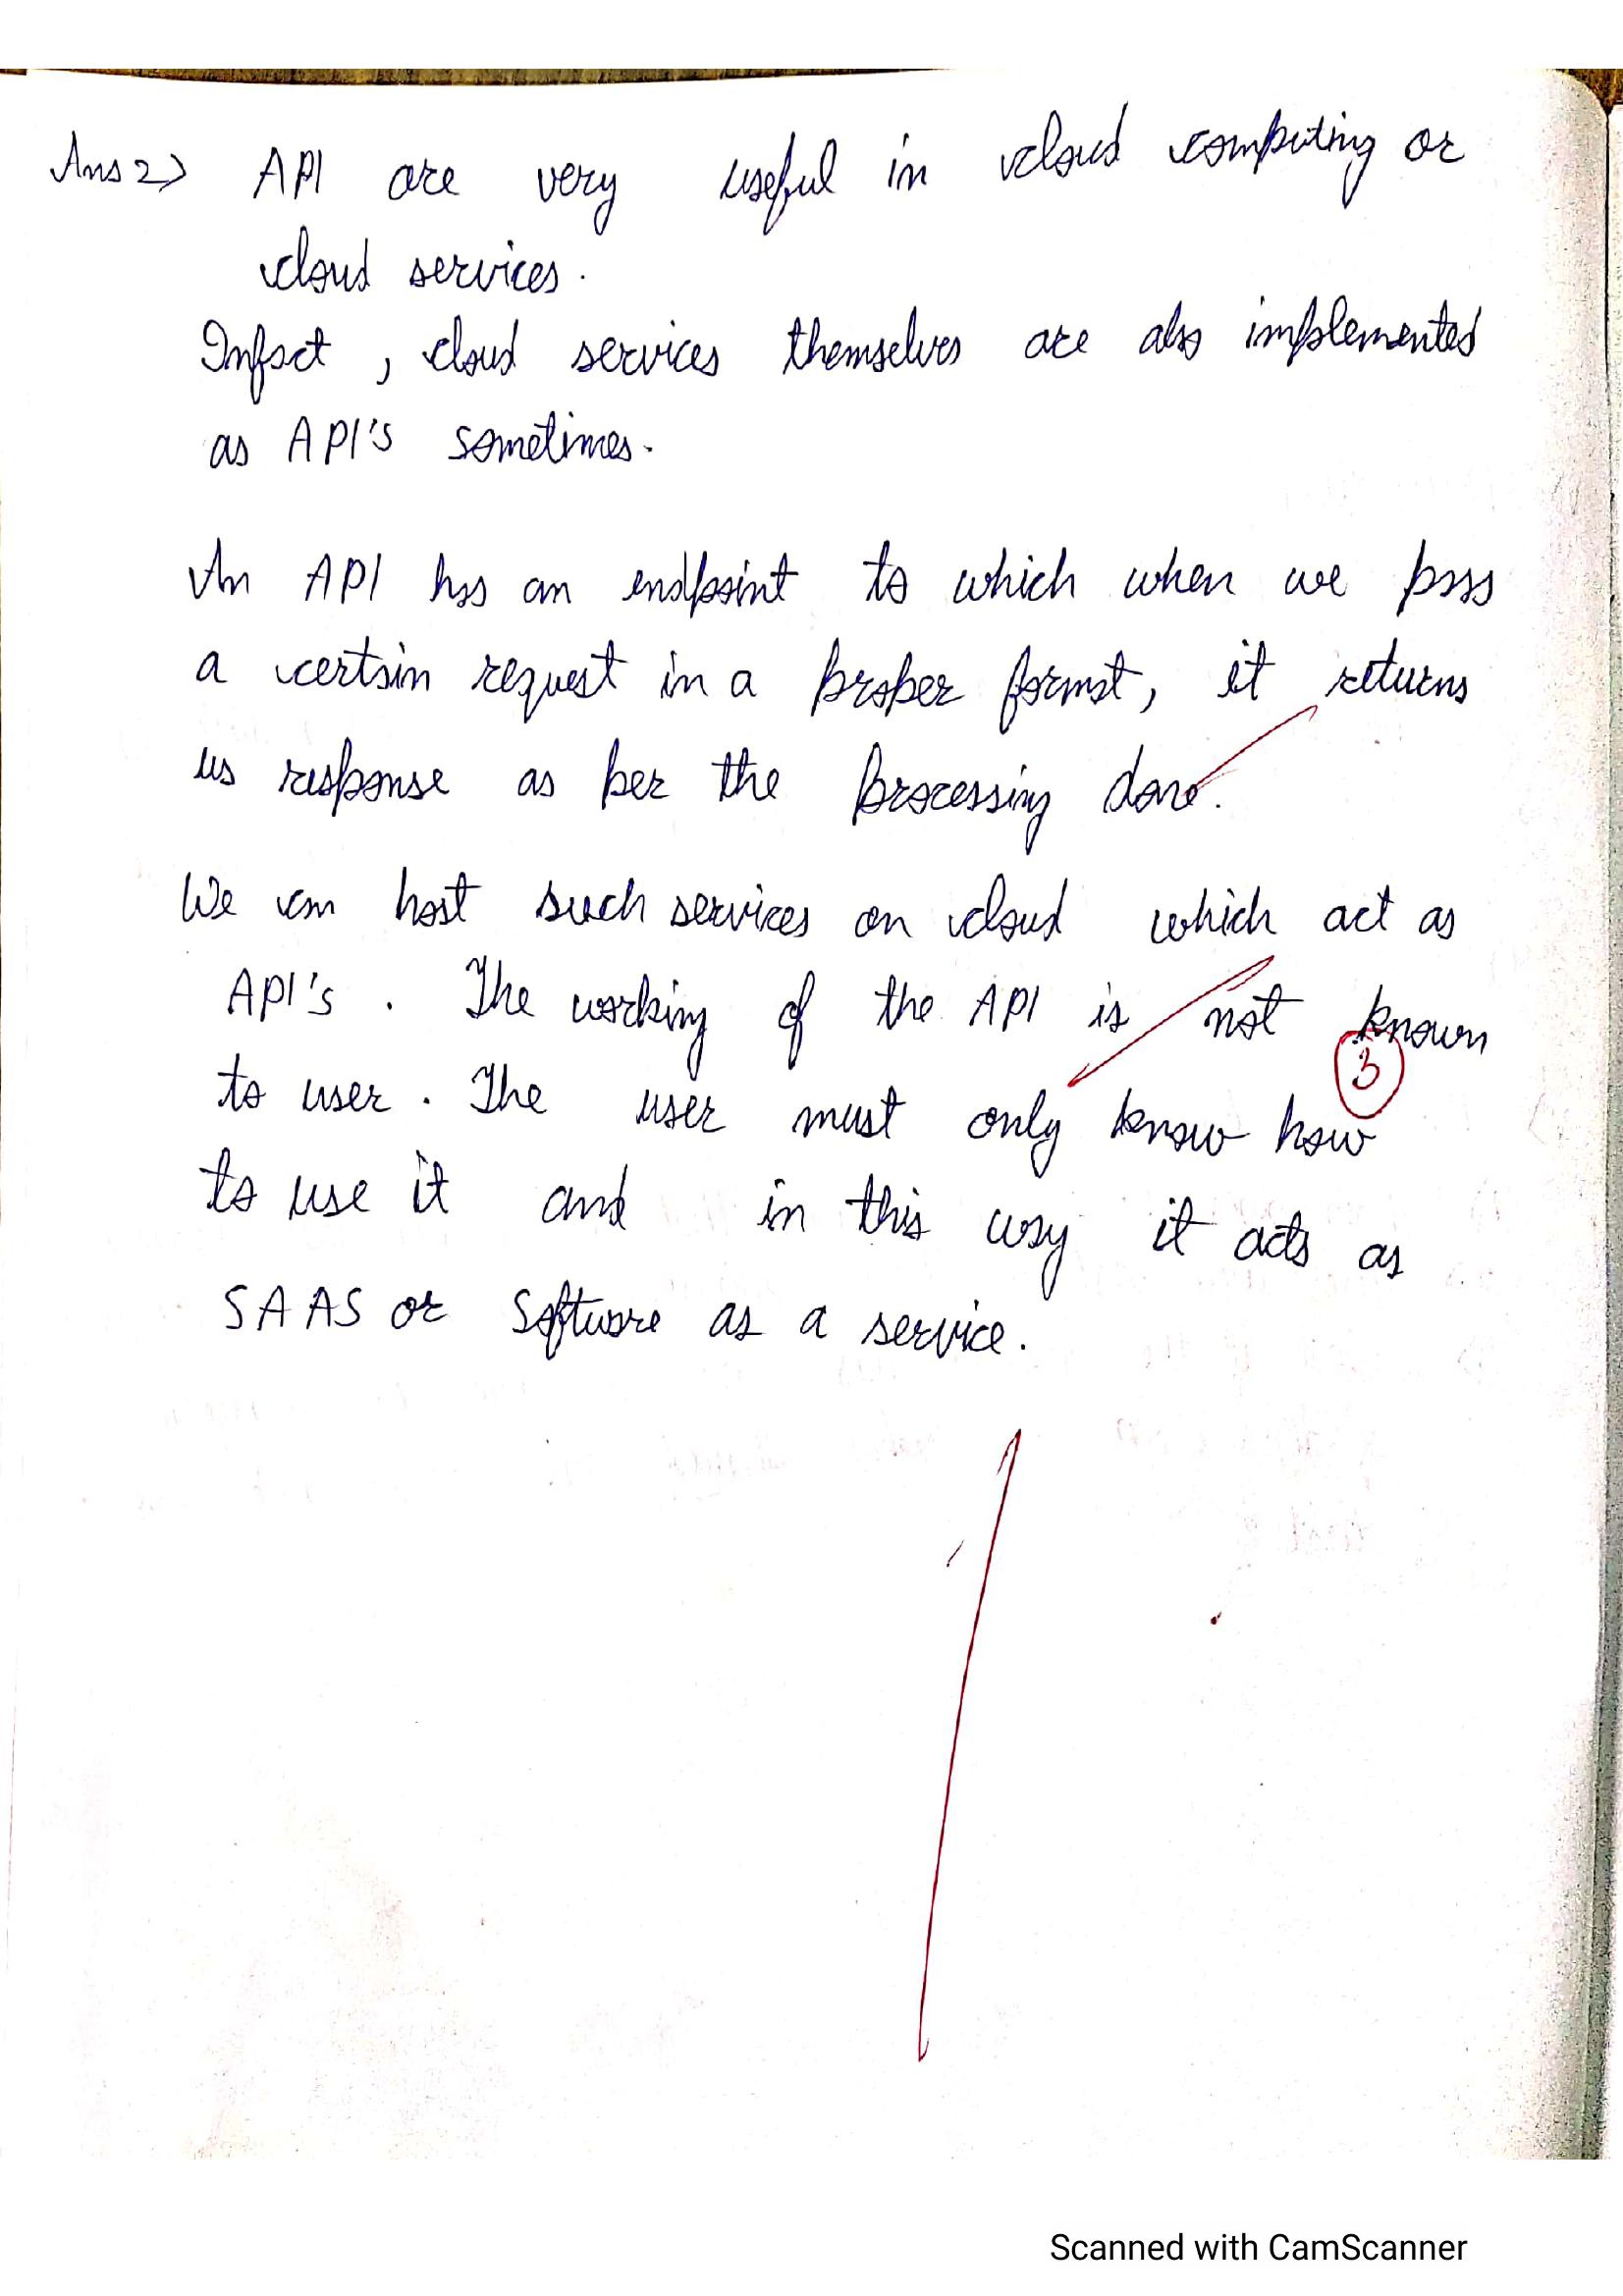 Ans 2> API are very useful in cloud computing or
cloud services.
Infact, cloud services themselves are also implemented
as API's sometimes.
An API has an endpoint to which when we pass
a certain request in a proper format, it returns
us response as per the processing done.
We can host such services on cloud which act as
API's. The working of the API is not known
3
to user. The user must only know how
to use it and in this way it acts as
SAAS or Software as a service.
Scanned with CamScanner